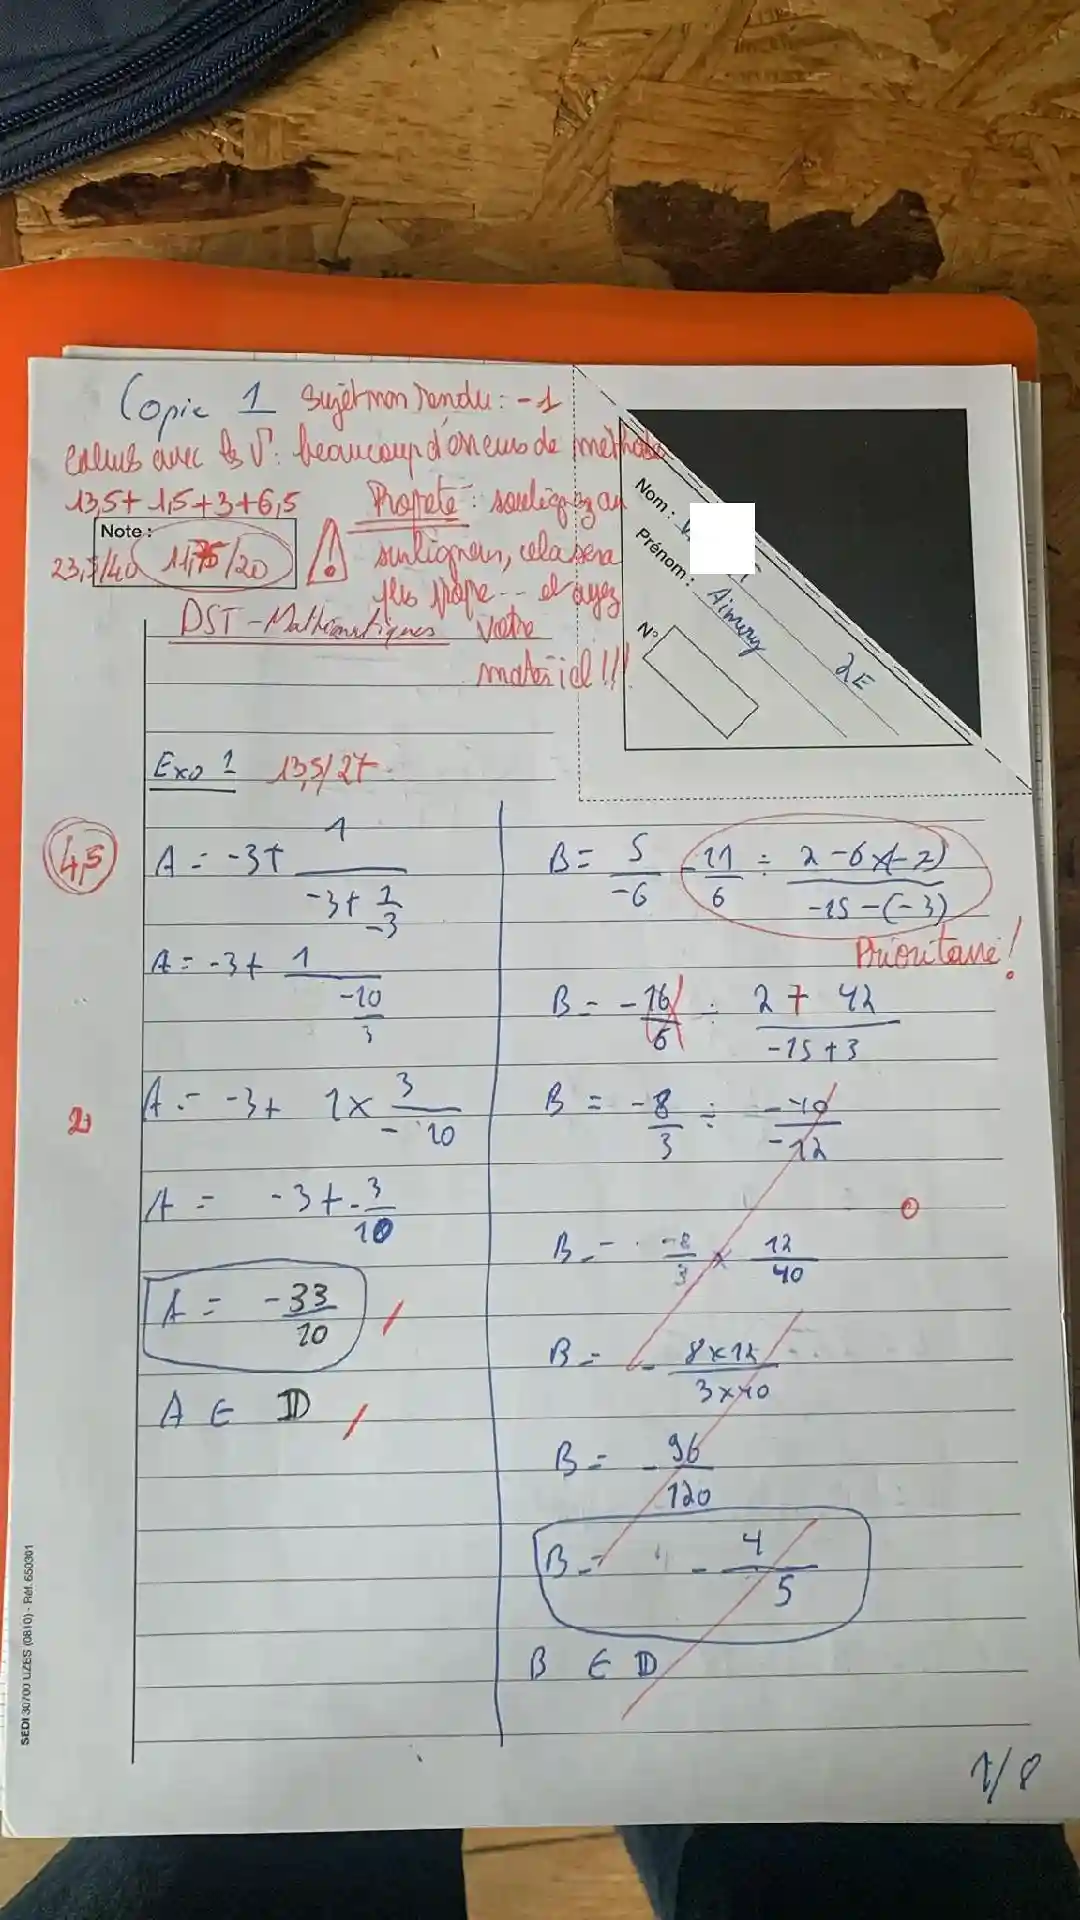 Copie 1 Sujet non rendu : -1
calculs avec les √ : beaucoup d'erreurs de méthodes
13,5+1,5+3+6,5
Propreté : soulignez au
Note :
23,5/40 11,75/20
surligneur, cela sera
plus propre... et ayez
votre
matériel !!!
DST - Mathématiques
Nom :
Prénom : Aimery
2E
N°
Exo 1 13,5/27
4,5
A = -3+ 1/(-3+ 1/-3)
A = -3+ 1/(-10/3)
A = -3+ 1× 3/-10
2
A = -3+ -3/10
A = -33/10
A ∈ 𝔻
B = 5/-6 - 11/6 ÷ (2-6×(-7))/(-15-(-3))
Prioritaire !
B = -16/6 ÷ (2+42)/(-15+3)
B = -8/3 ÷ -40/-12
0
B = -8/3 × 12/40
B = - (8×12)/(3×40)
B = - 96/120
B = - 4/5
B ∈ 𝔻
1/8
SEDI 30700 UZES (0810) - Réf. 650301